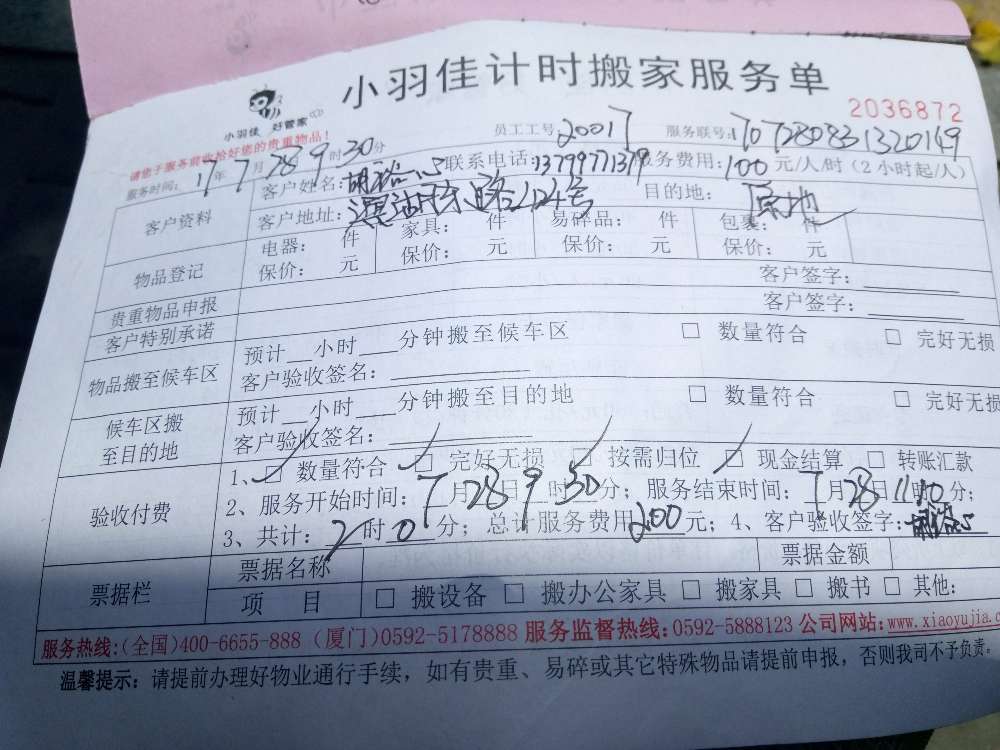 小羽佳计时搬家服务单
小羽佳 好管家
2036872
请您于服务前收拾好您的贵重物品！
员工工号：20017 服务联号：1707280831320149
服务时间：17年7月28 9时30分 联系电话：13799771379 服务费用：100元/人/时（2小时起/人）
客户资料 客户姓名：胡 目的地：原地
客户地址：东路124号
物品登记 电器： 件 家具： 件 易碎品： 件 包装： 件
保价： 元 保价： 元 保价： 元 保价： 元
贵重物品申报 客户签字：
客户特别承诺 客户签字：
物品搬至候车区 预计__小时___分钟搬至候车区 □ 数量符合 □ 完好无损
客户验收签名：
候车区搬至目的地 预计__小时___分钟搬至目的地 □ 数量符合 □ 完好无损
客户验收签名：
验收付费 1、☑ 数量符合 ☑ 完好无损 ☑ 按需归位 ☑ 现金结算 □ 转账汇款
2、服务开始时间：7月28日9时30分；服务结束时间：7月28日11时10分；
3、共计：2时0分；总计服务费用200元；4、客户验收签字：胡
票据栏 票据名称 票据金额
项 目 □ 搬设备 □ 搬办公家具 □ 搬家具 □ 搬书 □ 其他：
服务热线：（全国）400-6655-888（厦门）0592-5178888 服务监督热线：0592-5888123 公司网站：www.xiaoyujia.c
温馨提示：请提前办理好物业通行手续，如有贵重、易碎或其它特殊物品请提前申报，否则我司不予负责。